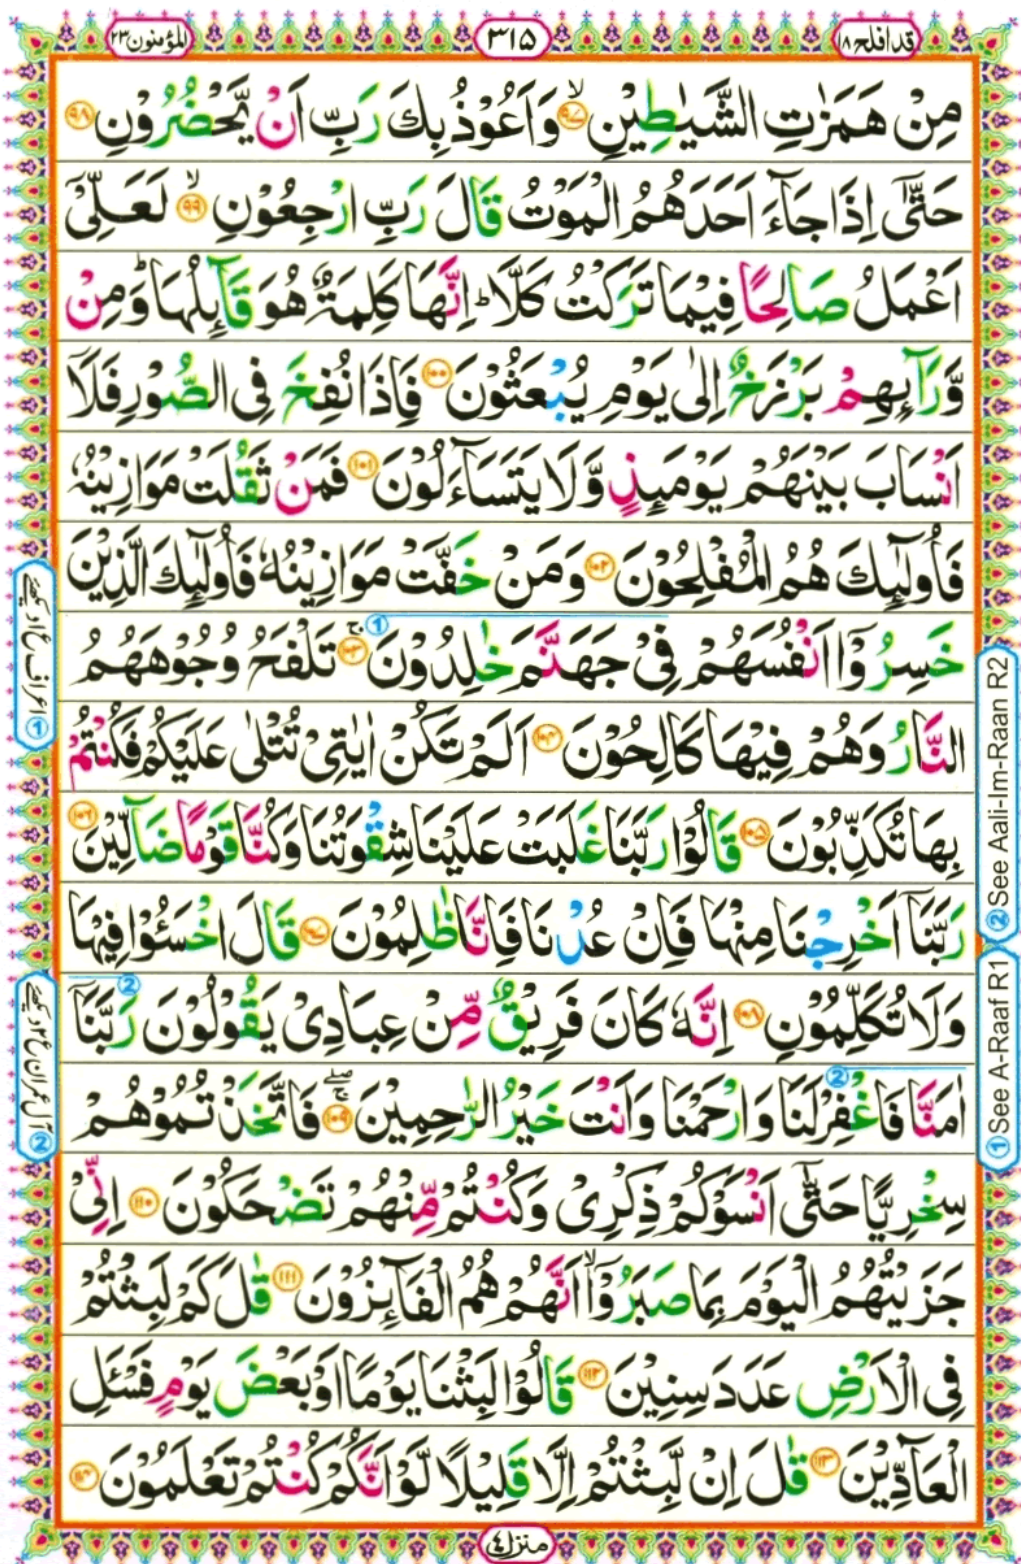 قد افلح ١٨
٣١٥
المؤمنون ٢٣
مِنْ هَمَزٰتِ الشَّيٰطِيْنِ ۙ‏﴿۹۷﴾ وَاَعُوْذُ بِكَ رَبِّ اَنْ يَّحْضُرُوْنِ ﴿۹۸﴾
حَتّٰٓى اِذَا جَآءَ اَحَدَهُمُ الْمَوْتُ قَالَ رَبِّ ارْجِعُوْنِ ۙ‏﴿۹۹﴾ لَعَلِّىْٓ
اَعْمَلُ صَالِحًا فِيْمَا تَرَكْتُ كَلَّا ؕ اِنَّهَا كَلِمَةٌ هُوَ قَآئِلُهَا ؕ وَمِنْ
وَّرَآئِهِمْ بَرْزَخٌ اِلٰى يَوْمِ يُبْعَثُوْنَ ﴿۱۰۰﴾ فَاِذَا نُفِخَ فِى الصُّوْرِ فَلَآ
اَنْسَابَ بَيْنَهُمْ يَوْمَئِذٍ وَّلَا يَتَسَآءَلُوْنَ ﴿۱۰۱﴾ فَمَنْ ثَقُلَتْ مَوَازِيْنُهٗ
فَاُولٰٓئِكَ هُمُ الْمُفْلِحُوْنَ ﴿۱۰۲﴾ وَمَنْ خَفَّتْ مَوَازِيْنُهٗ فَاُولٰٓئِكَ الَّذِيْنَ
خَسِرُوْٓا اَنْفُسَهُمْ فِىْ جَهَنَّمَ خٰلِدُوْنَ ۚ‏﴿۱۰۳﴾ ① تَلْفَحُ وُجُوْهَهُمُ
النَّارُ وَهُمْ فِيْهَا كَالِحُوْنَ ﴿۱۰۴﴾ اَلَمْ تَكُنْ اٰيٰتِىْ تُتْلٰى عَلَيْكُمْ فَكُنْتُمْ
بِهَا تُكَذِّبُوْنَ ﴿۱۰۵﴾ قَالُوْا رَبَّنَا غَلَبَتْ عَلَيْنَا شِقْوَتُنَا وَكُنَّا قَوْمًا ضَآلِّيْنَ ﴿۱۰۶﴾
رَبَّنَآ اَخْرِجْنَا مِنْهَا فَاِنْ عُدْنَا فَاِنَّا ظٰلِمُوْنَ ﴿۱۰۷﴾ قَالَ اخْسَئُوْا فِيْهَا
وَلَا تُكَلِّمُوْنِ ﴿۱۰۸﴾ اِنَّهٗ كَانَ فَرِيْقٌ مِّنْ عِبَادِىْ يَقُوْلُوْنَ رَبَّنَآ ②
اٰمَنَّا فَاغْفِرْ لَنَا ② وَارْحَمْنَا وَاَنْتَ خَيْرُ الرّٰحِمِيْنَ ۚۖ‏﴿۱۰۹﴾ فَاتَّخَذْتُمُوْهُمْ
سِخْرِيًّا حَتّٰٓى اَنْسَوْكُمْ ذِكْرِىْ وَكُنْتُمْ مِّنْهُمْ تَضْحَكُوْنَ ﴿۱۱۰﴾ اِنِّىْ
جَزَيْتُهُمُ الْيَوْمَ بِمَا صَبَرُوْٓا ۙ اَنَّهُمْ هُمُ الْفَآئِزُوْنَ ﴿۱۱۱﴾ قٰلَ كَمْ لَبِثْتُمْ
فِى الْاَرْضِ عَدَدَ سِنِيْنَ ﴿۱۱۲﴾ قَالُوْا لَبِثْنَا يَوْمًا اَوْ بَعْضَ يَوْمٍ فَسْئَلِ
الْعَآدِّيْنَ ﴿۱۱۳﴾ قٰلَ اِنْ لَّبِثْتُمْ اِلَّا قَلِيْلًا لَّوْ اَنَّكُمْ كُنْتُمْ تَعْلَمُوْنَ ﴿۱۱۴﴾
منزل ٤
① See A-Raaf R1 ② See Aali-Im-Raan R2
① اعراف ع ا دیکھئے
② آل عمران ع ٢ دیکھئے